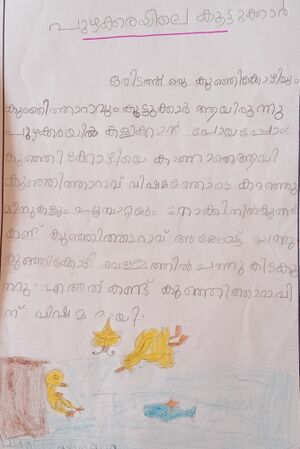 പുഴക്കരയിലെ കൂട്ടുക്കാർ
ഒരിടത്ത് ഒരു കുഞ്ഞിക്കോഴിയും
കുഞ്ഞിത്താറാവും കൂട്ടുക്കാർ ആയിരുന്നു
പുഴക്കരയിൽ കളിക്കാൻ പോയപ്പോൾ
കുഞ്ഞിക്കോഴിയെ കാണാതെആയി
കുഞ്ഞിത്താറാവ് വിഷമത്തോടെ കരഞ്ഞു
മീനുകളും പൂമ്പാറ്റയും നോക്കിനിൽകുന്നത്
കണ്ട് കുഞ്ഞിത്താറാവ് അങ്ങോട്ട് ചെന്നു
കുഞ്ഞിക്കോഴി വെള്ളത്തിൽ ചത്തു കിടക്കു
ന്നു എഅത് കണ്ട് കുഞ്ഞിത്താറാവി
ന് വിഷമമായി.